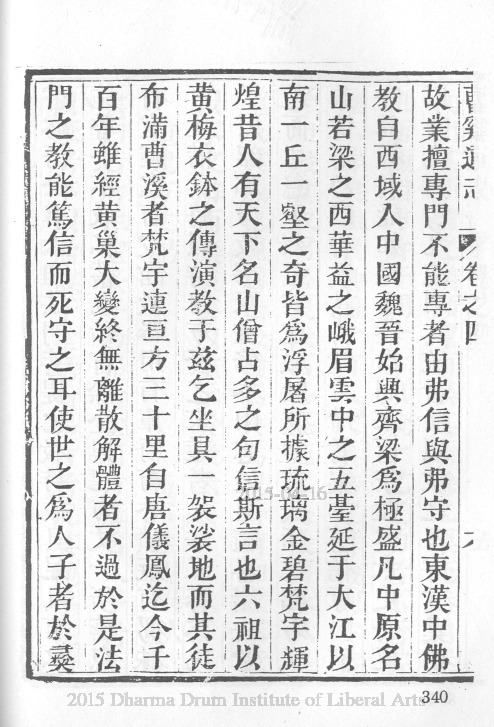 曹溪通志 卷之四
故業擅專門不能專者由弗信與弗守也東漢中佛
教自西域入中國魏晉始興齊梁爲極盛凡中原名
山若梁之西華益之峨眉雲中之五臺延于大江以
南一丘一壑之奇皆爲浮屠所據琉璃金碧梵宇輝
煌昔人有天下名山僧占多之句信斯言也六祖以
黄梅衣鉢之傳演教于兹乞坐具一袈裟地而其徒
布滿曹溪者梵宇連亘方三十里自唐儀鳳迄今千
百年雖經黄巢大變終無離散解體者不過於是法
門之教能篤信而死守之耳使世之爲人子者於彛
340
2015 Dharma Drum Institute of Liberal Arts